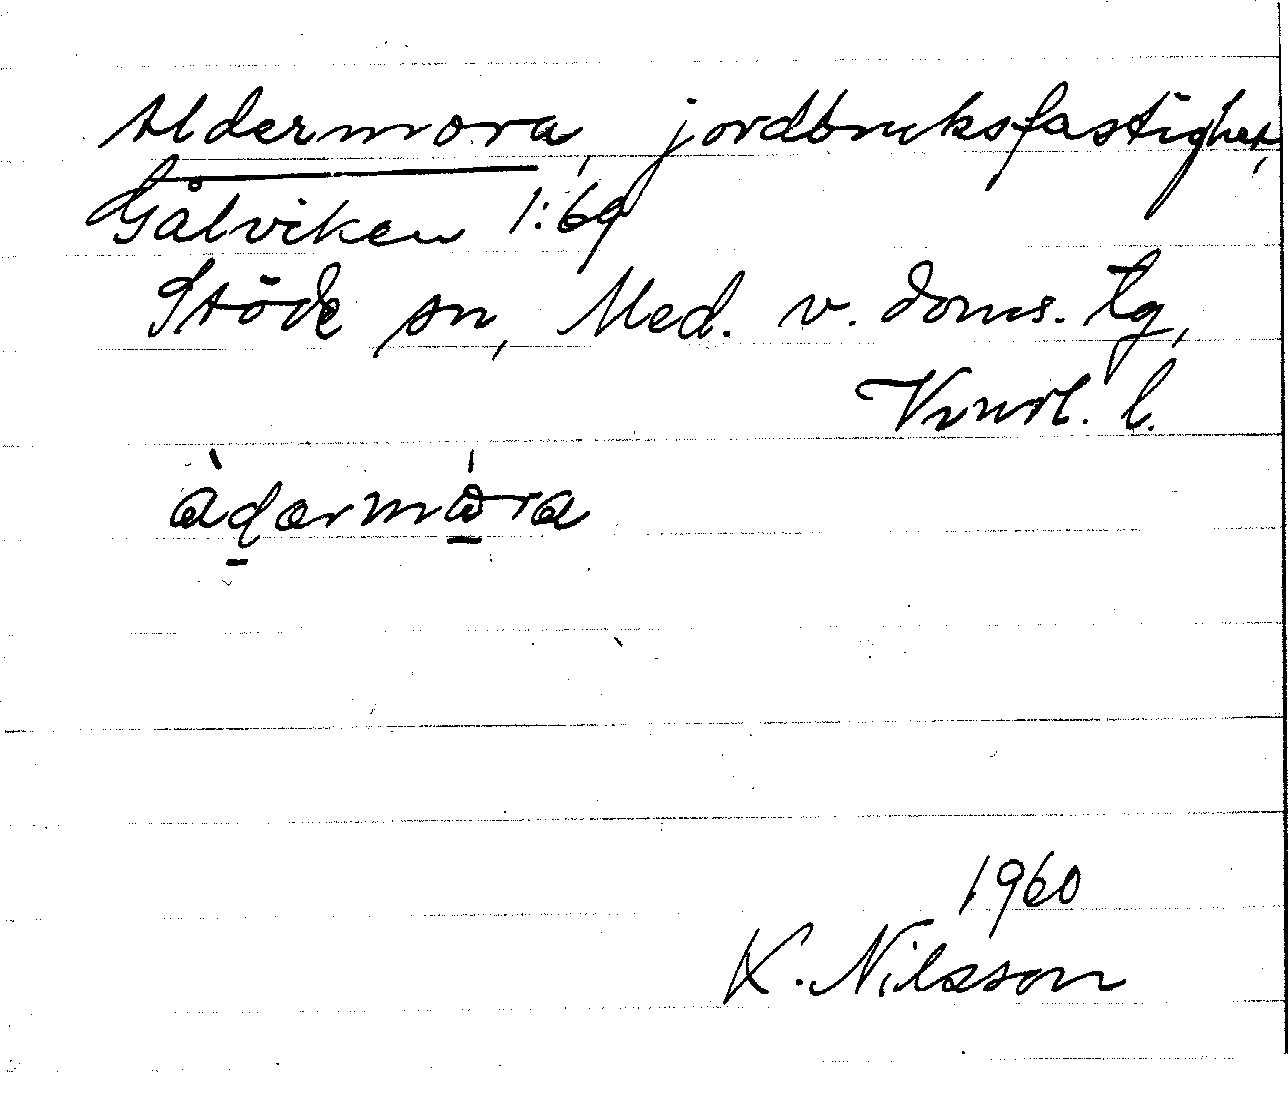 Aldermora, jordbruksfastighet,
Gålviken 1:69
Stöde sn, Med. v. doms. tg,
Vnrl. l.
1960
K. Nilsson